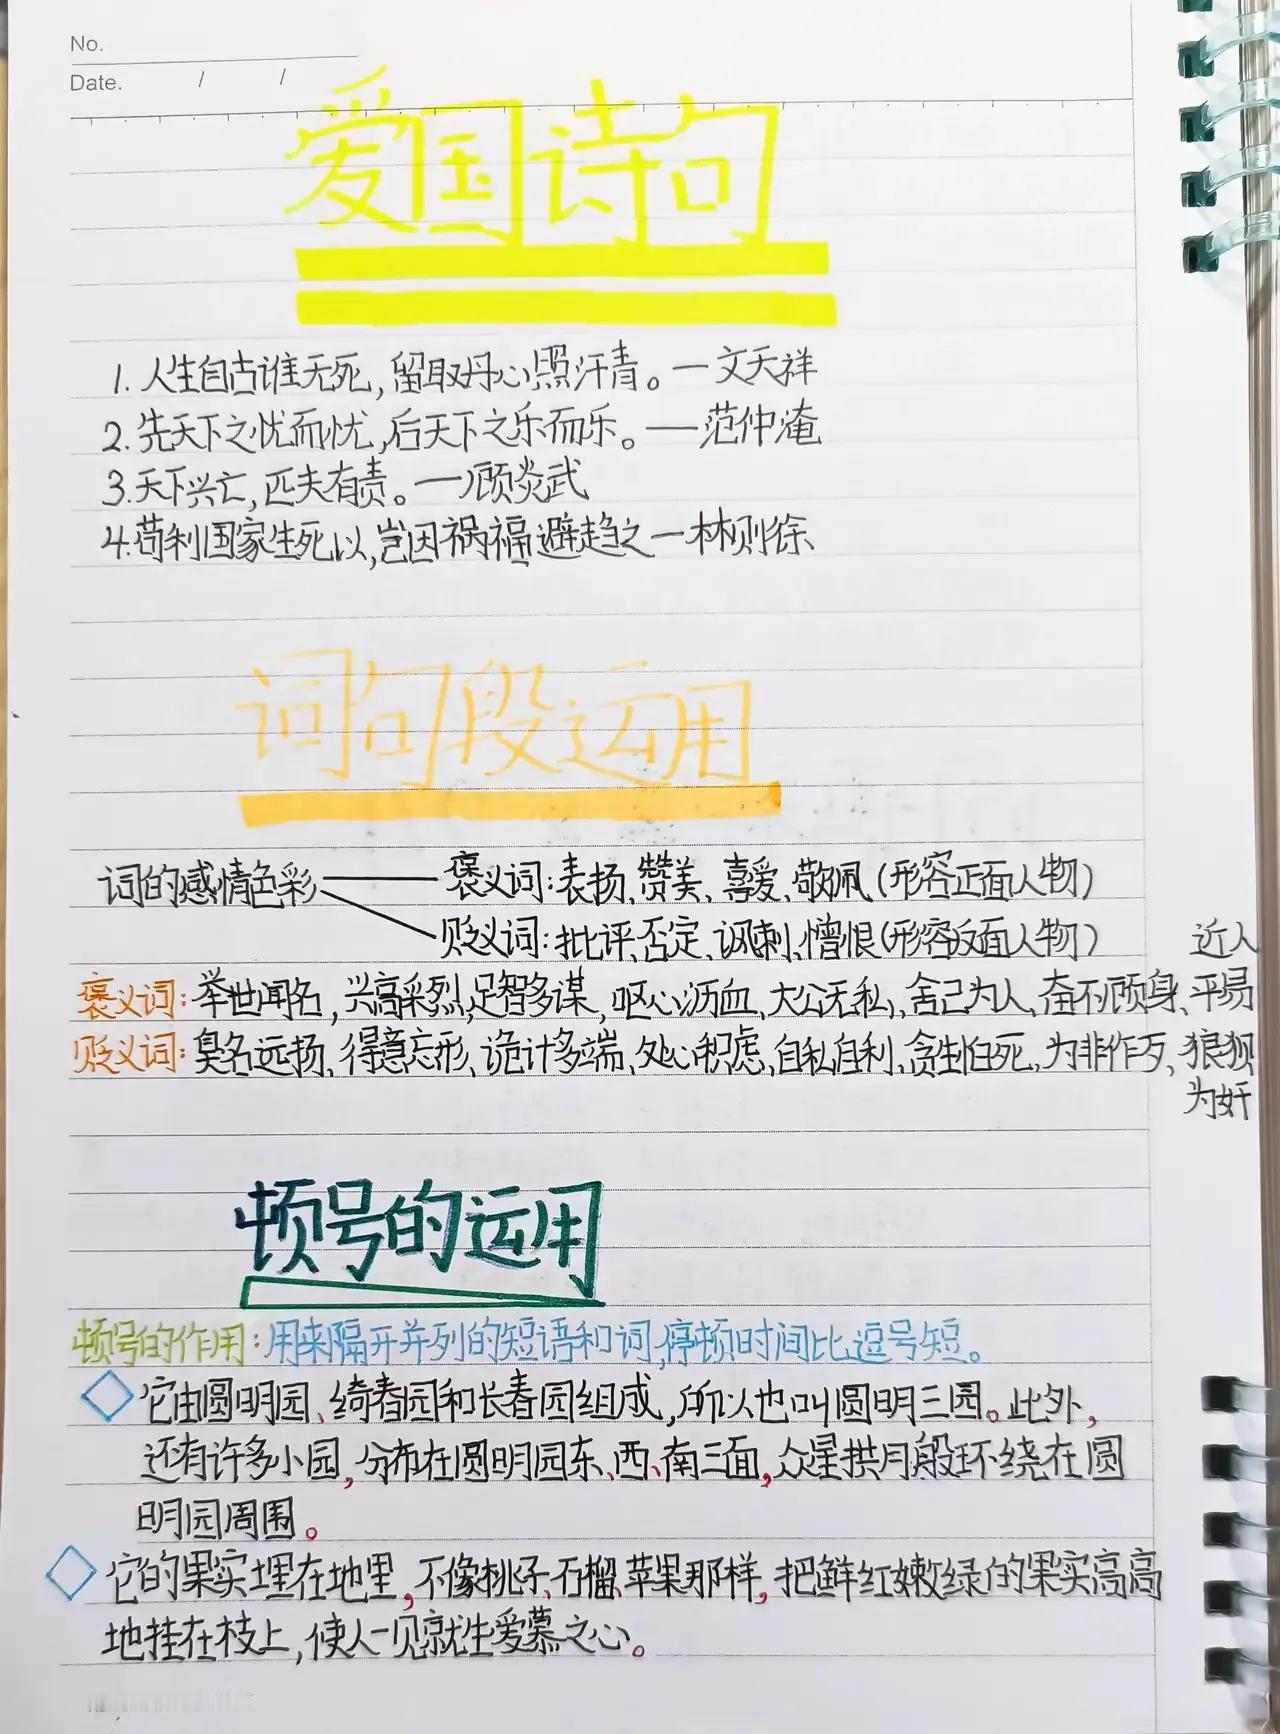 No.
Date. / /
爱国诗句
1. 人生自古谁无死,留取丹心照汗青。一文天祥
2. 先天下之忧而忧,后天下之乐而乐。——范仲淹
3. 天下兴亡,匹夫有责。一顾炎武
4. 苟利国家生死以,岂因祸福避趋之一林则徐
词句段运用
词的感情色彩
褒义词:表扬、赞美、喜爱、敬佩(形容正面人物)
贬义词:批评、否定、讽刺、憎恨(形容反面人物)
褒义词:举世闻名,兴高采烈,足智多谋,呕心沥血、大公无私,舍己为人、奋不顾身、平易
近人
贬义词:臭名远扬、得意忘形、诡计多端、处心积虑、自私自利、贪生怕死、为非作歹、狼狈
为奸
顿号的运用
顿号的作用:用来隔开并列的短语和词,停顿时间比逗号短。
它由圆明园、绮春园和长春园组成,所以也叫圆明三园。此外,
还有许多小园,分布在圆明园东、西、南三面,众星拱月般环绕在圆
明园周围。
它的果实埋在地里,不像桃子、石榴、苹果那样,把鲜红嫩绿的果实高高
地挂在枝上,使人一见就生爱慕之心。